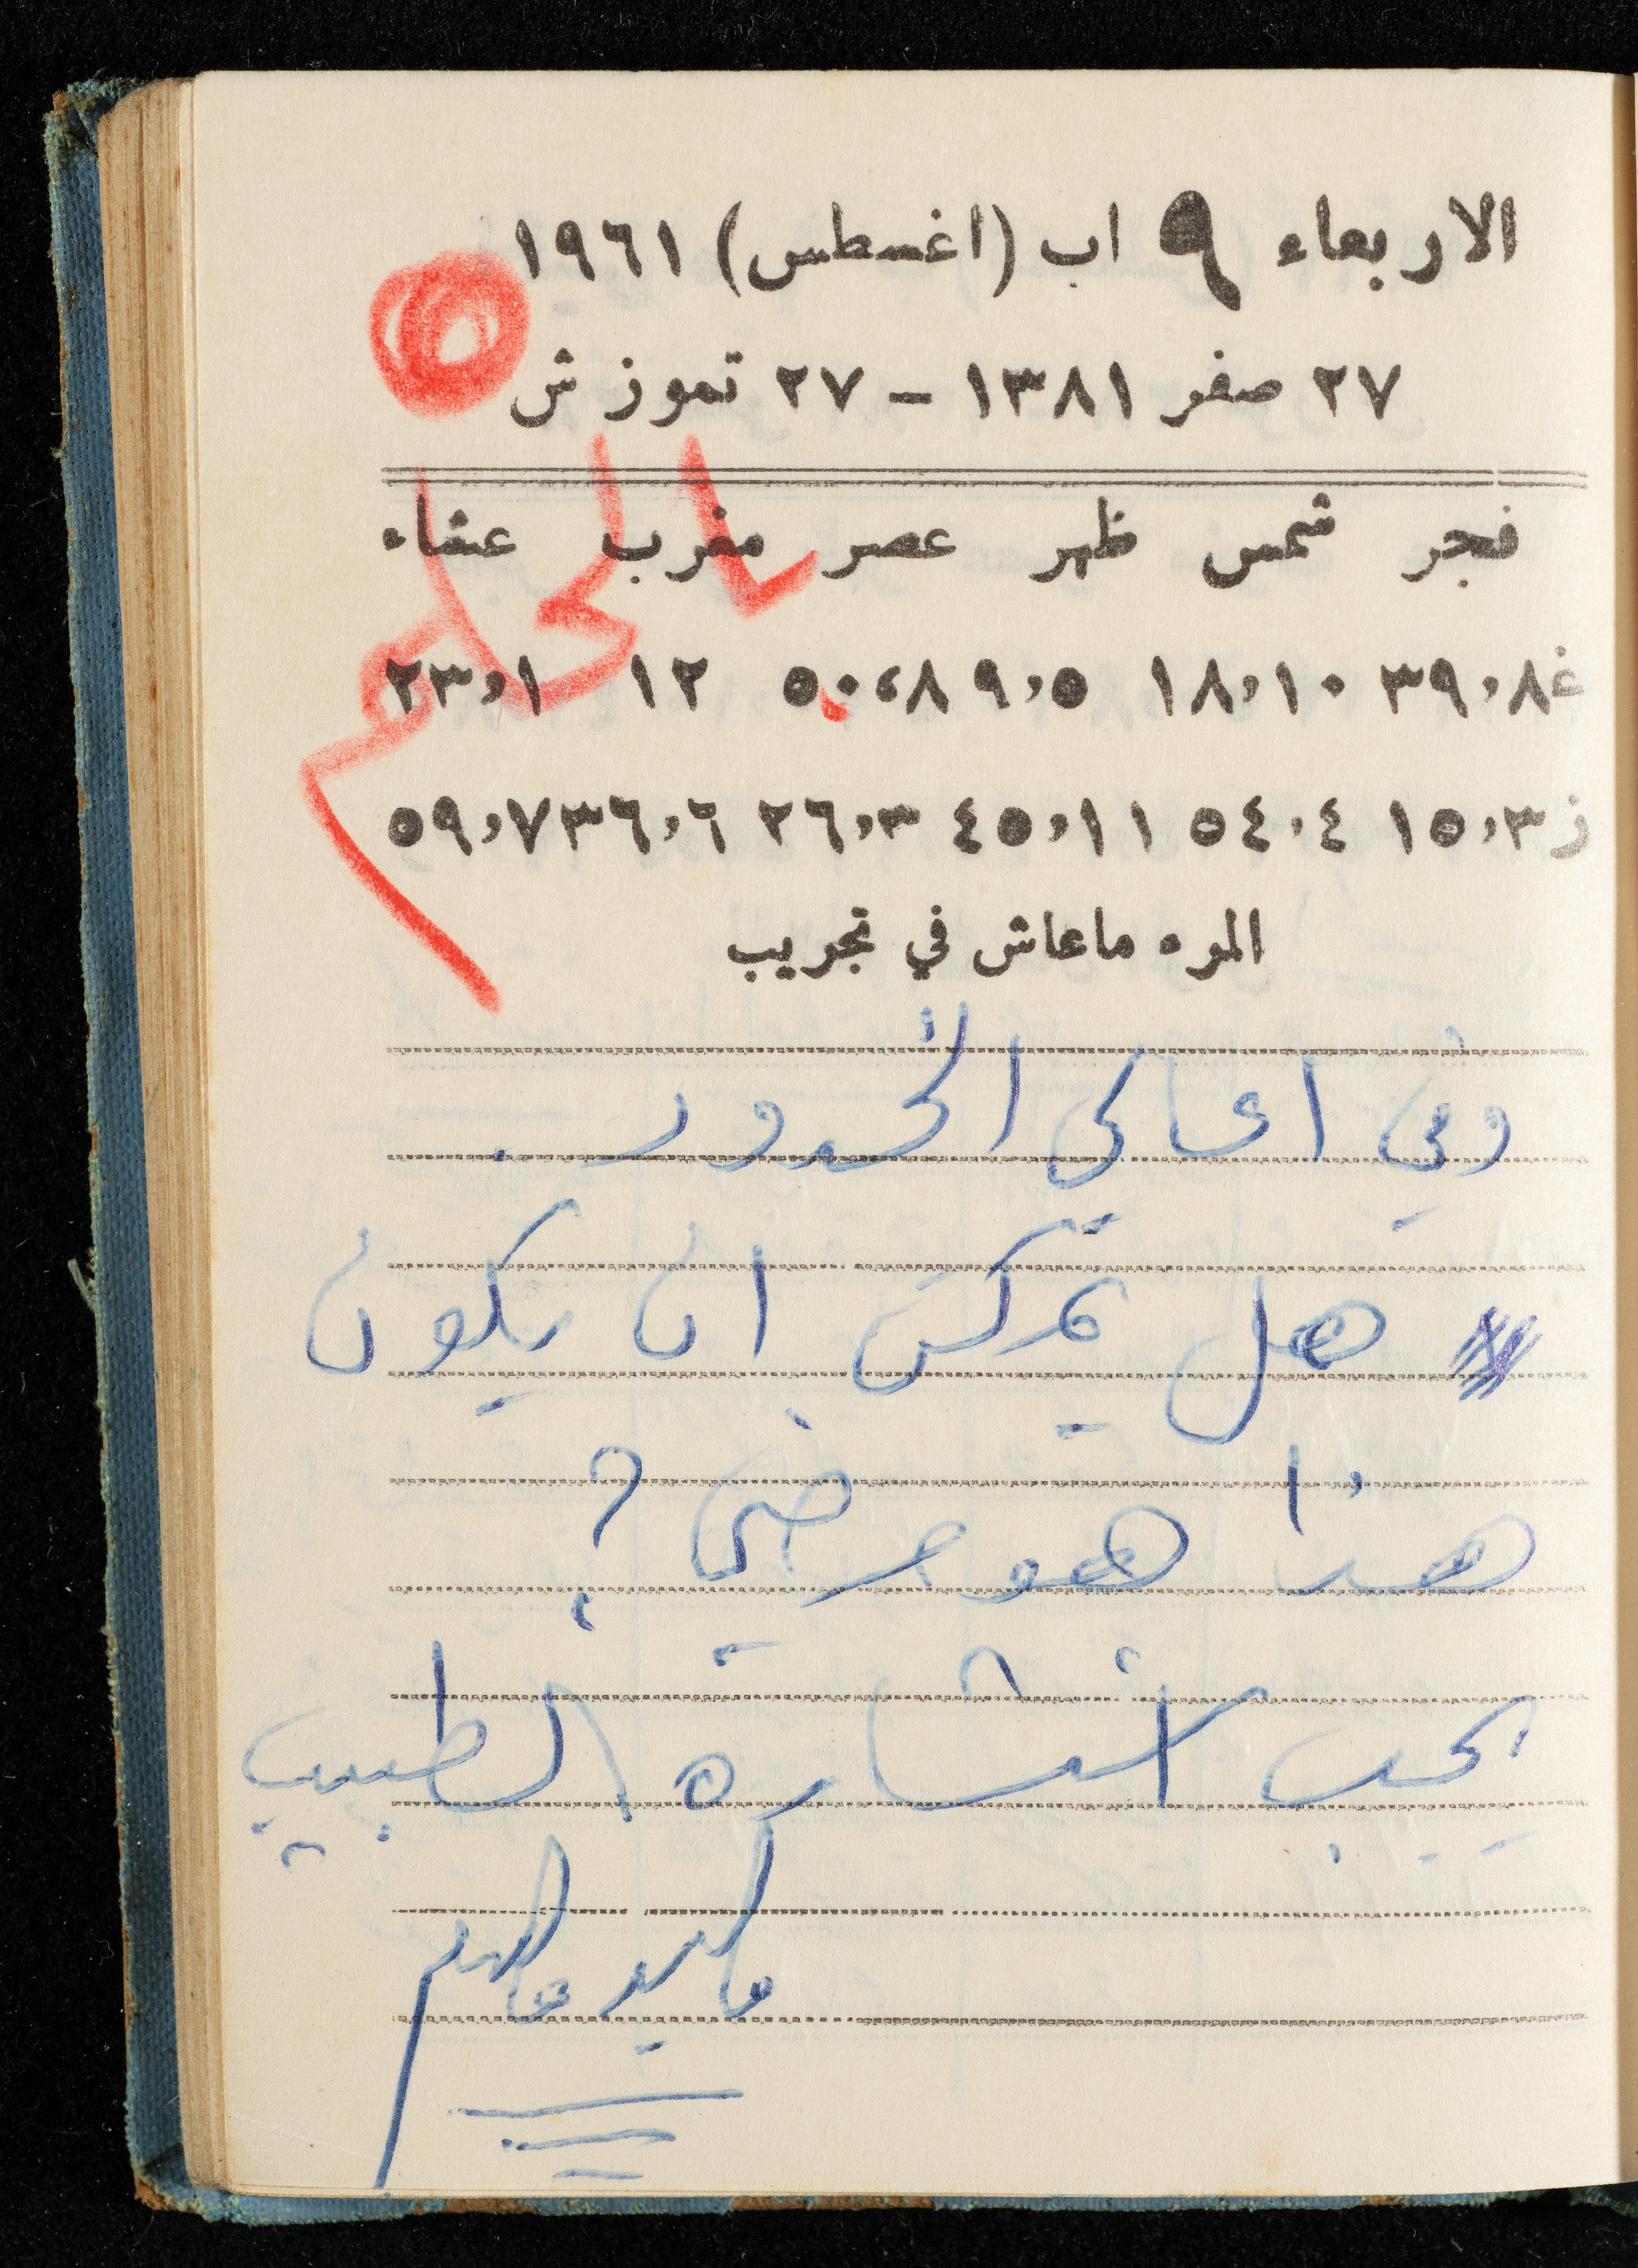 الاربعاء ٩ اب (اغسطس) ١٩٦١
٢٧ صفر ١٣٨١ – ٢٧ تموز ش
الحلم
فجر شمس ظهر عصر مغرب عشاء
غ ٣٩،٨ ١٨،١٠ ٩،٥ ٥٠،٨ ١٢ ٢٣،١
ز ١٥،٣ ٥٤،٤ ٤٥،١١ ٢٦،٣ ٣٦،٦ ٥٩،٧
المرء ماعاش في تجريب
وفي اعالي الحدود.
هل يمكن ان يكون
هذا هو مرضي؟
يجب استشارة الطبيب